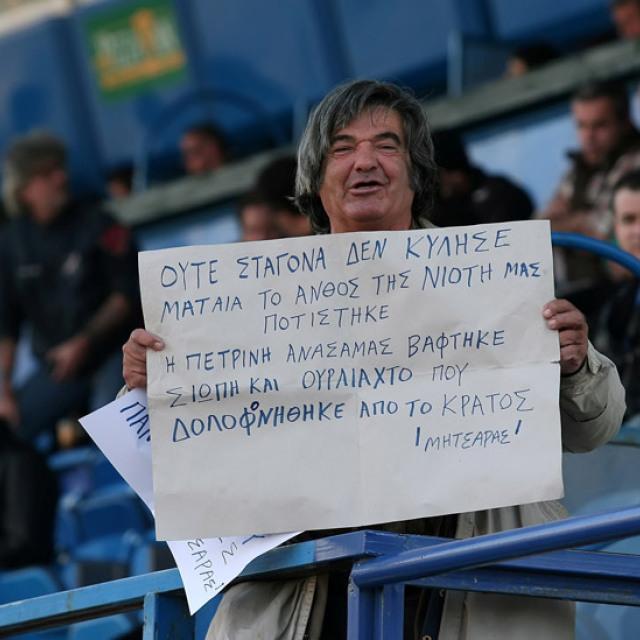 ΟΥΤΕ ΣΤΑΓΟΝΑ ΔΕΝ ΚΥΛΗΣΕ
ΜΑΤΑΙΑ ΤΟ ΑΝΘΟΣ ΤΗΣ ΝΙΟΤΗ ΜΑΣ
ΠΟΤΙΣΤΗΚΕ
Η ΠΕΤΡΙΝΗ ΑΝΑΣΑΜΑΣ ΒΑΦΤΗΚΕ
ΣΙΩΠΗ ΚΑΙ ΟΥΡΛΙΑΧΤΟ ΠΟΥ
ΔΟΛΟΦΟΝΗΘΗΚΕ ΑΠΟ ΤΟ ΚΡΑΤΟΣ
!ΜΗΤΣΑΡΑΣ!